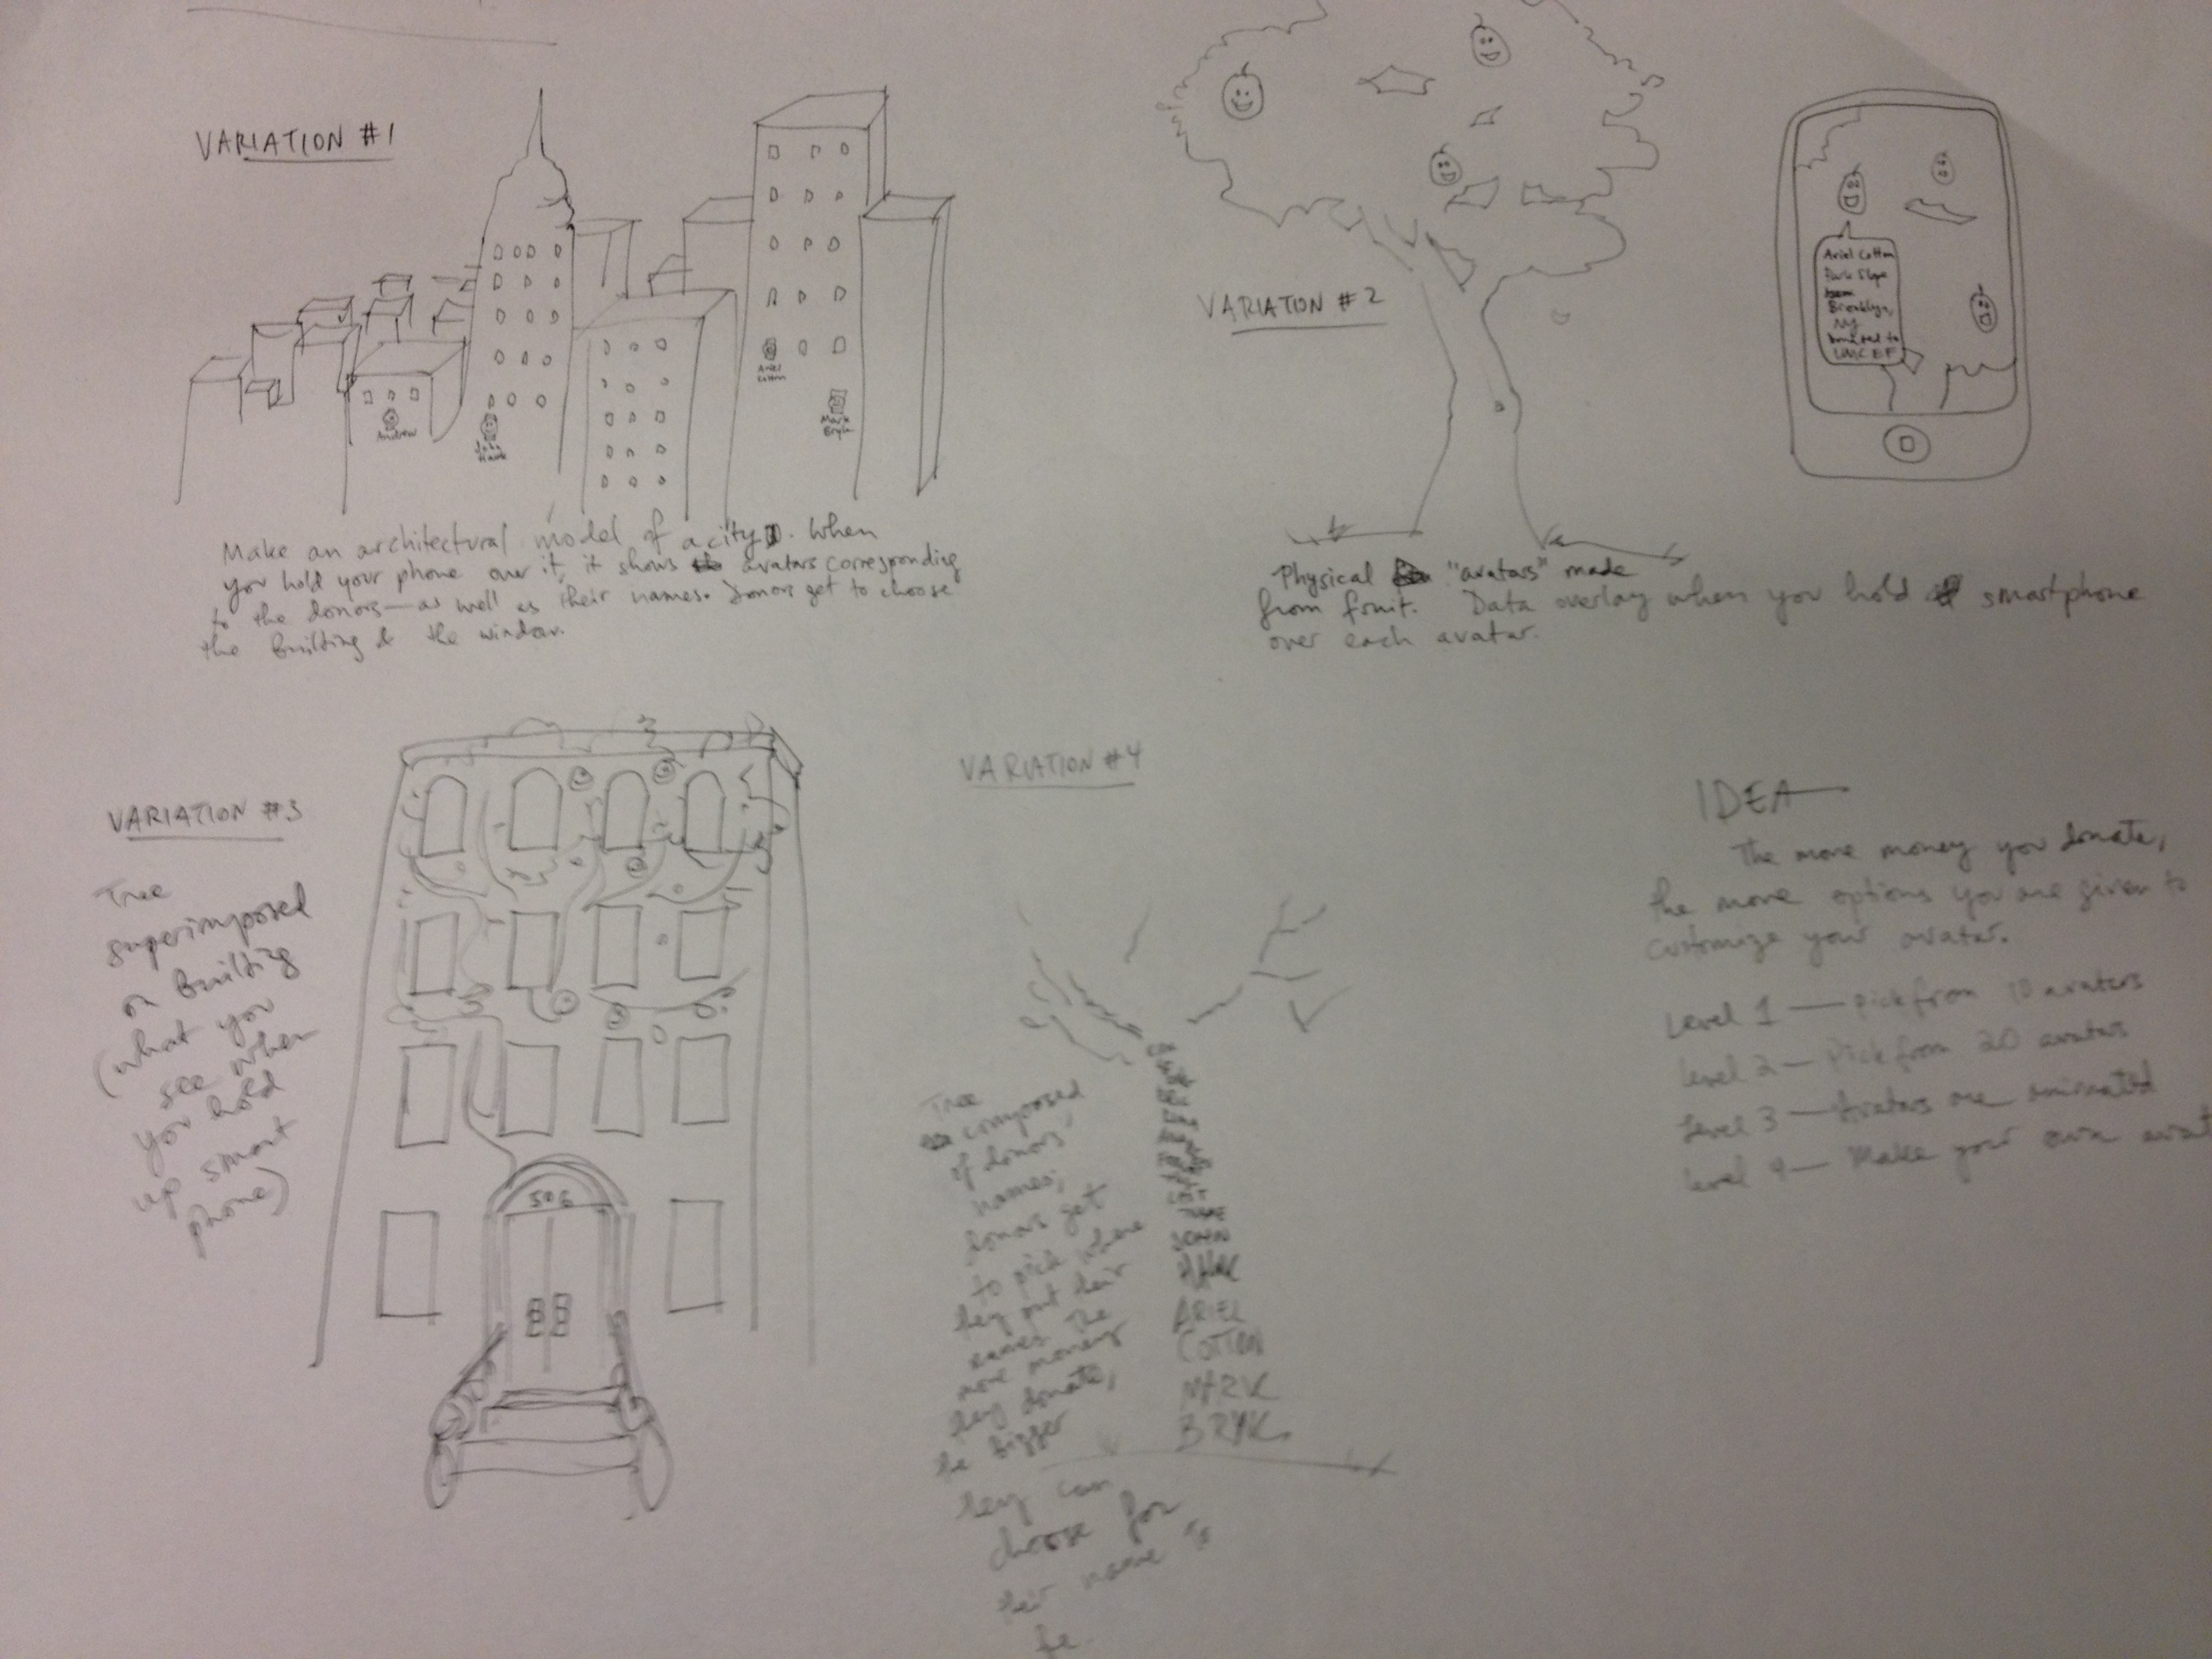 VARIATION #1
Andrew
Ariel
Cotton
Mark
Make an architectural model of a city. When
you hold your phone over it, it shows avatars corresponding
to the donors—as well as their names. Donors get to choose
the building & the window.
VARIATION #2
Ariel Cotton
Park Slope
Brooklyn,
NY
Donated to
UNICEF
Physical "avatars" made
from fruit. Data overlay when you hold smartphone
over each avatar.
VARIATION #3
Tree
superimposed
on building
(what you
see when
you hold
up smart
phone)
506
VARIATION #4
Tree
composed
of donors'
names;
donors get
to pick where
they put their
names. The
more money
they donate,
the bigger
they can
choose for
their name to
be.
JOHN
ARIEL
COTTON
MARK
BRYK.
IDEA
The more money you donate,
the more options you are given to
customize your avatar.
Level 1 — pick from 10 avatars
Level 2 — Pick from 20 avatars
Level 3 — Avatars are animated
Level 4 — Make your own avat